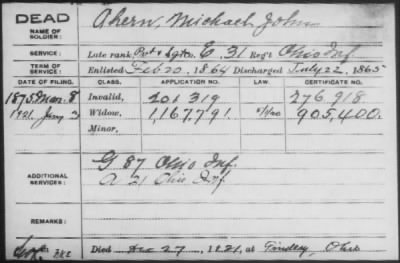 DEAD
NAME OF SOLDIER: Ahern, Michael John
SERVICE: Late rank, Pvt & Sgt Co. E, 31 Reg't Ohio Inf
TERM OF SERVICE: Enlisted Feb 20, 1864 Discharged July 22, 1865
DATE OF FILING. CLASS. APPLICATION NO. LAW. CERTIFICATE NO.
1875 Mar. 8 Invalid, 201 319 276 918
1921. Jany 3 Widow, 1167791 905,400.
Minor,
ADDITIONAL SERVICES: G 87 Ohio Inf.
A 21 Ohio Inf.
REMARKS:
Died Dec 27, 1921, at Findlay, Ohio